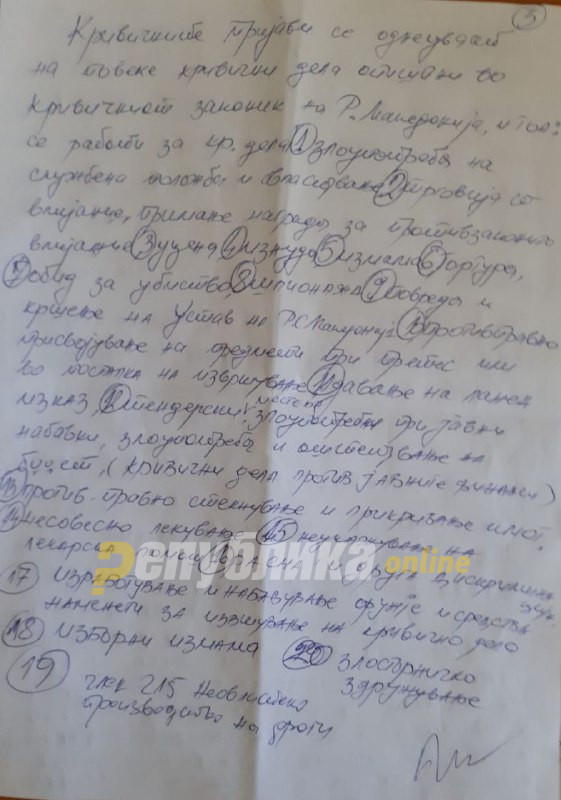 3
Кривичните пријави се однесуваат
на повеќе кривични дела опишани во
кривичниот законик на Р. Македонија, и тоа:
се работи за кр. дела 1 злоупотреба на
службена положба и 2 трговија со
влијание, примање награда за противзаконито
влијание 3 уцена 4 изнуда 5 измама 6 тортура,
7 обид за убиство 8 шпионажа 9 повреда и
кршење на Устав на 10 противправно
присвојување на предмети при претрес или
во постапка на извршување 11 давање на лажен
исказ, 12 тендерски злоупотреби при јавни
набавки, злоупотреба и оштетување на
буџет, (кривични дела против јавните финансии)
13 против-правно стекнување и прикривање имот,
14 несовесно лекување 15 неукажување на
лекарска помош 16 расна и друга дискриминација
17 изработување и набавување оружје и средства
наменети за извршување на кривично дело
18 изборни измама
20 злосторничко
здружување
19 член 215 неовластено
производство на дроги
Република online